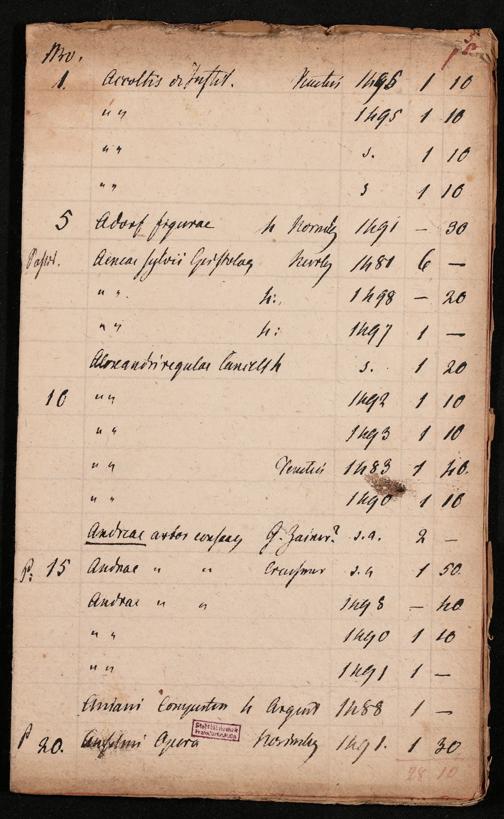 Nro.
1. Accoltis de Instit. Venetiis 1495 1 10
" " 1495 1 10
" " s. 1 10
" " s 1 10
5 Adorf figurae h 1491 – 30
Aeneae Sylvii 1481 6 –
" " h: 1498 – 20
" " h: 1497 1 –
Alexandri regulae Cancell h s. 1 20
10 " " 1492 1 10
" " 1493 1 10
" " Venetiis 1483 1 40
" " 1490 1 10
Andreae arbor consang G. Zainer? s.a. 2 –
P. 15 Andreae " " Creussner s.a 1 50
Andreae " " 1498 – 40
" " 1490 1 10
" " 1491 1 –
Aniani Computus h Argent 1488 1 –
P 20. Anselmi Opera Norimbg 1491. 1 30
Stadtbibliothek
Frankfurt/Main
28 10